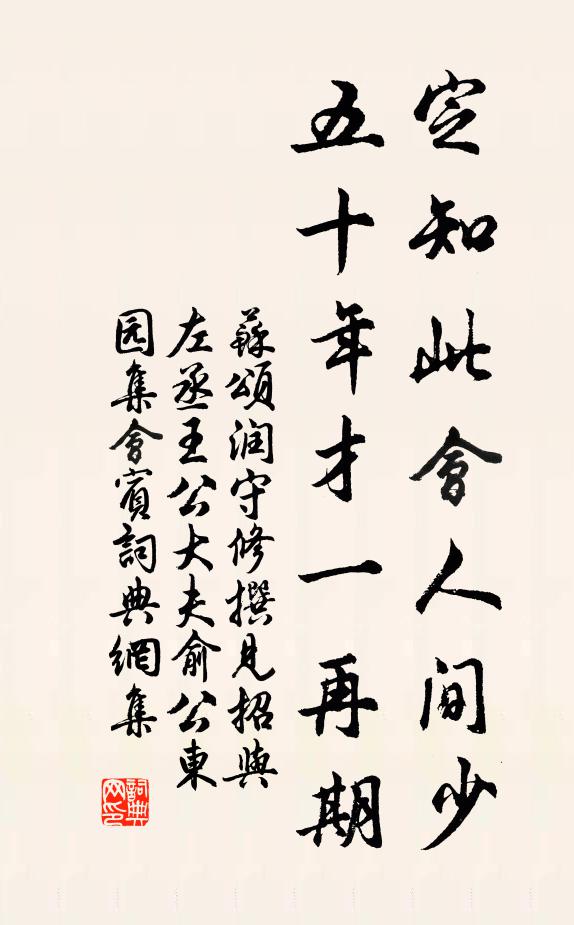 定知此會人間少
五十年才一再期
蘇頌润守修撰見招與
左丞王公大夫俞公東
园集會賓詞典網集
詞典网印